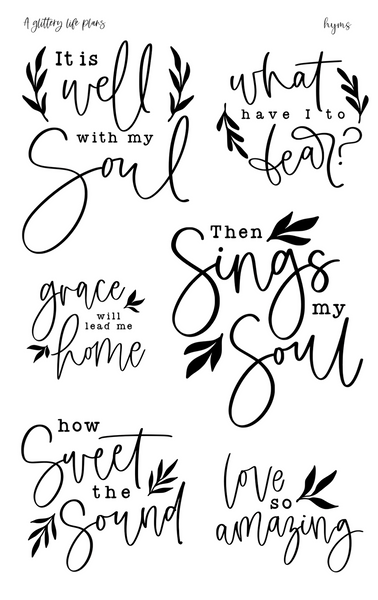 A glittery life plans
hyms
It is
well
with my
Soul
what
have I to
fear?
Then
Sings
my
Soul
grace
will
lead me
home
how
Sweet
the
Sound
love
so
amazing